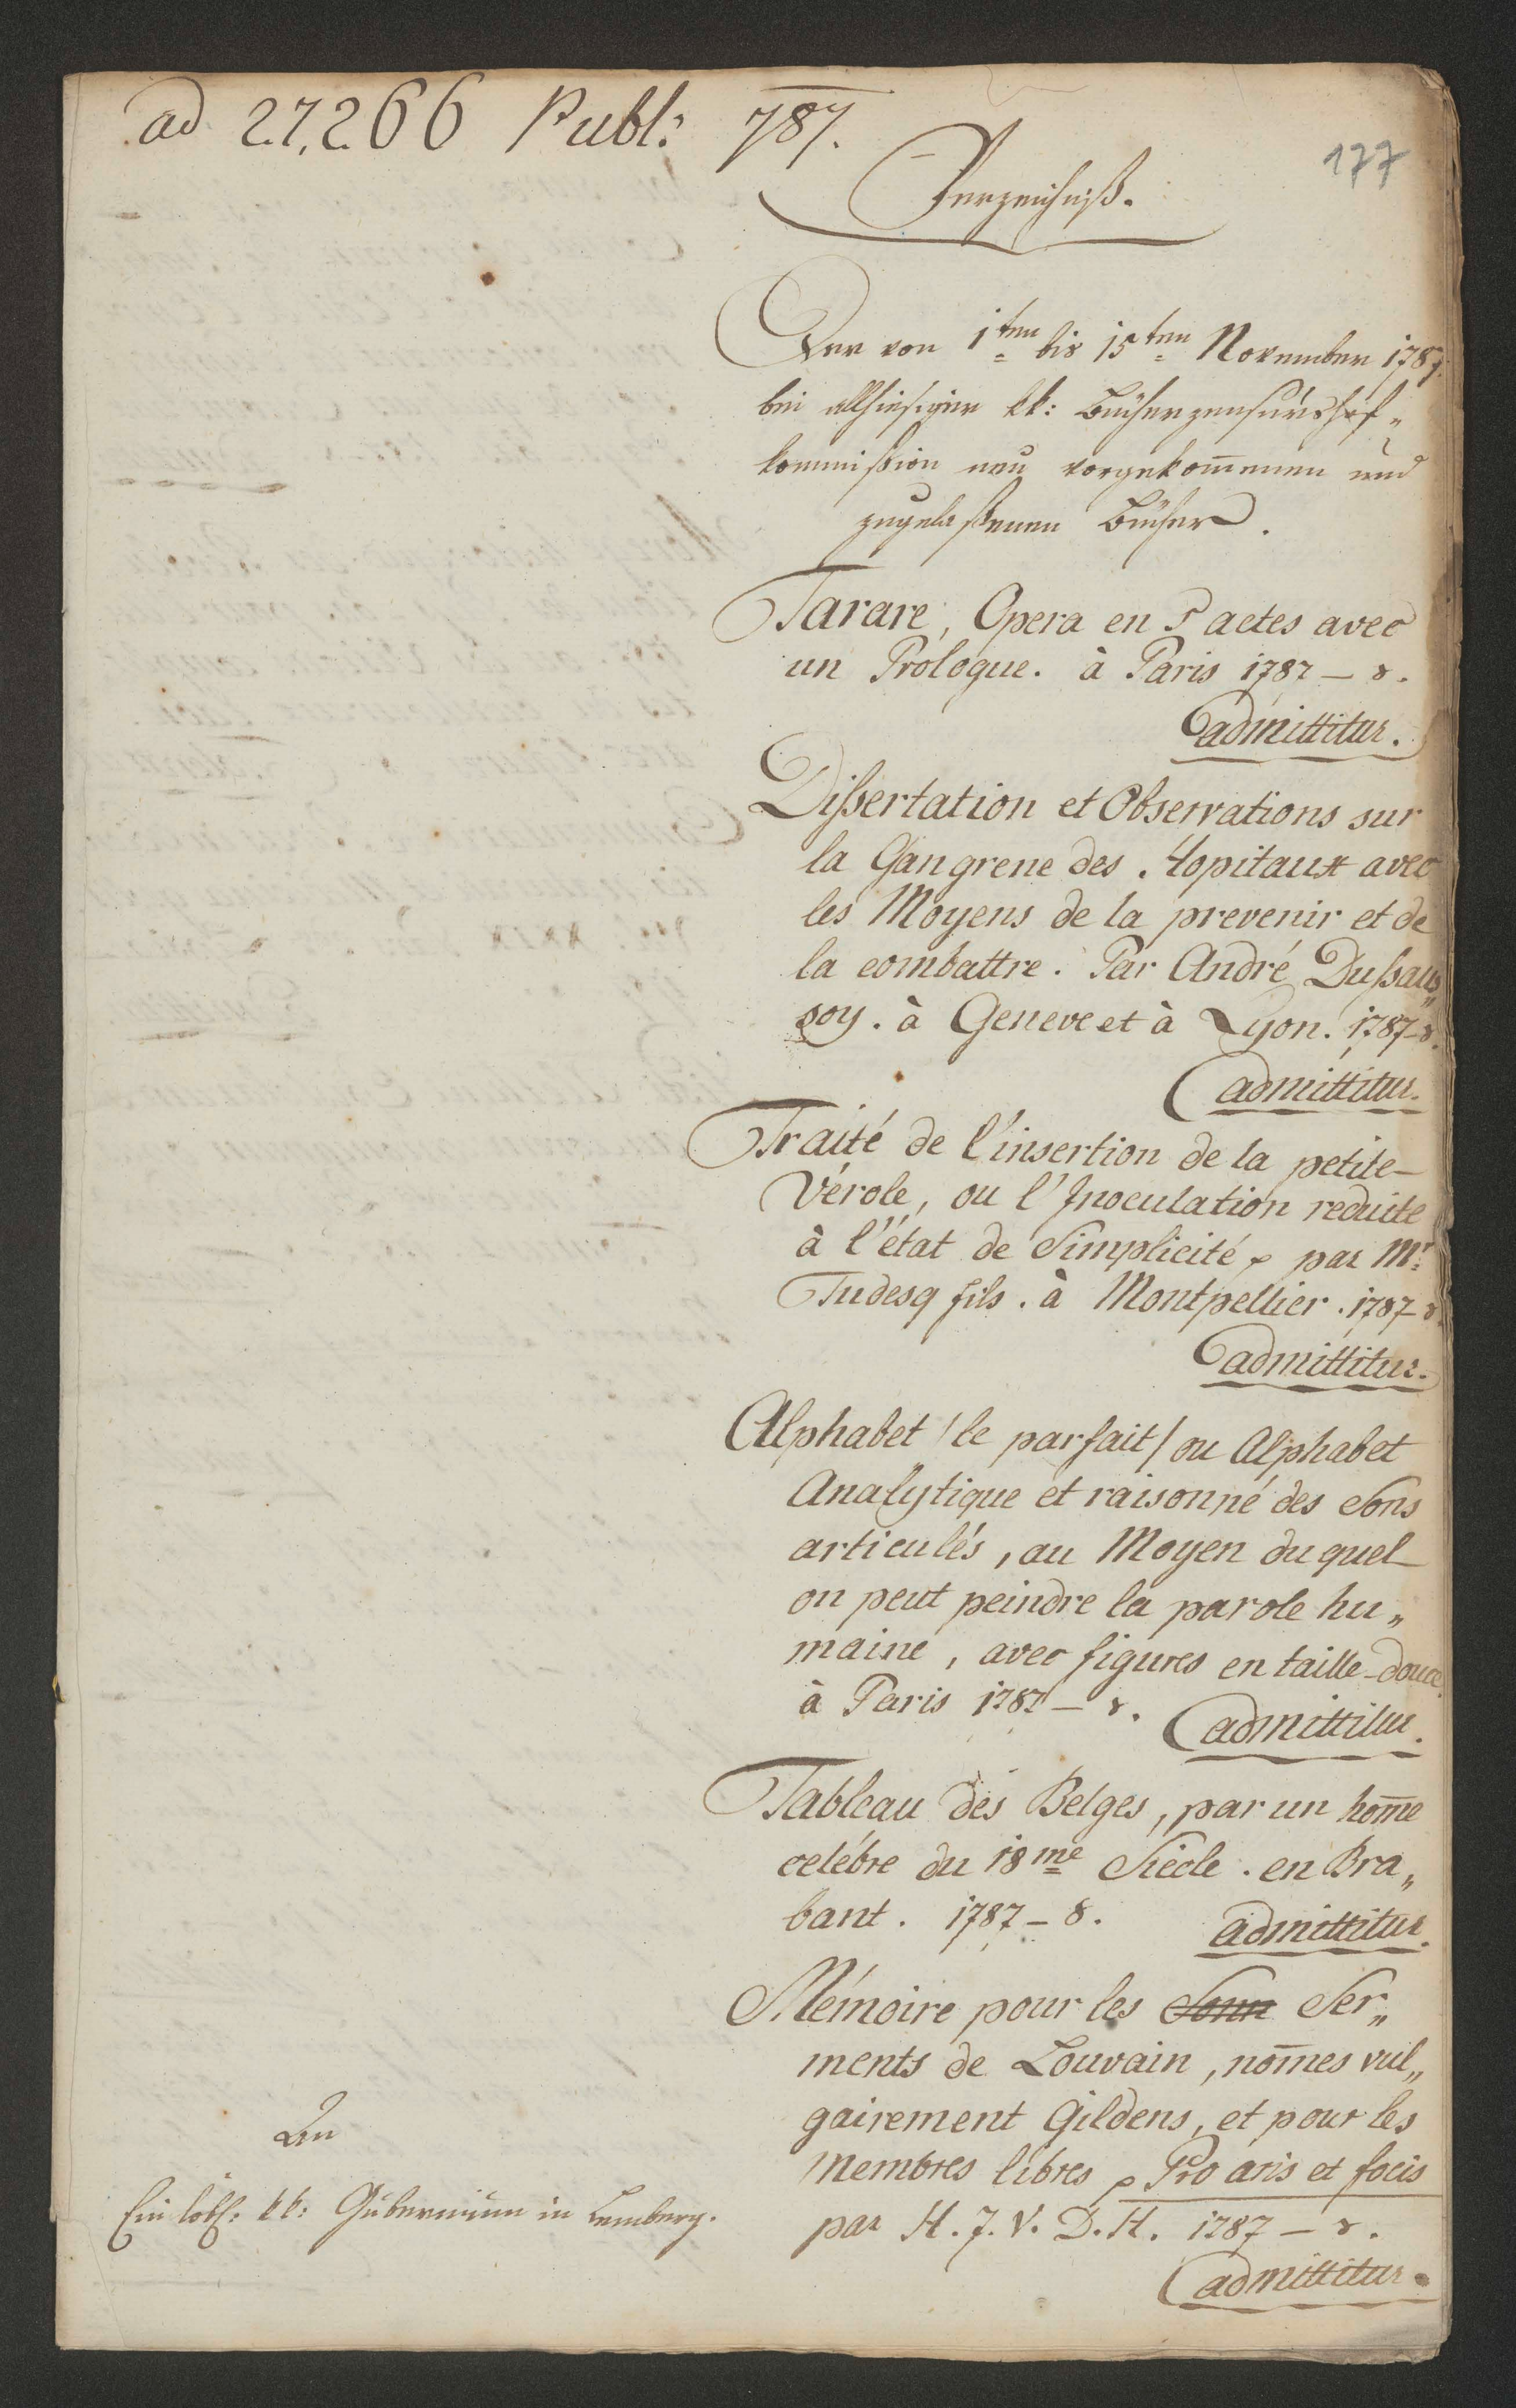 ad 27,266 Publ: 787.
177
Verzeichniß.
Der von 1ten bis 15ten November 1787.
bei allhiesiger kk: Bücherzensurshof„
kommißion neu vorgekom̄enen und
zugelaßenen Bücher.
Tarare, Opera en 5 actes avec
un Prologue. à Paris 1787 – 8.
admittitur.
Dißertation et Observations sur
la Gangrene des Hopitaux avec
les Moyens de la prevenir et de
la combattre. Par André Dußaus„
soy. à Geneve et à Lyon. 1787–8.
admittitur.
Traité de l'insertion de la petite–
Vérole, ou l'Inoculation reduite
à l'état de Simplicité, par Mr
Tudesq fils. à Montpellier. 1787–8.
admittitur.
Alphabet /le parfait/ ou Alphabet
Analytique et raisonné des Sons
articulés, au Moyen duquel
on peut peindre la parole hu„
maine, avec figures en taille-douce.
à Paris 1787 – 8. admittitur.
Tableau des Belges, par un hom̄e
celébre du 18me Siécle. en Bra„
bant. 1787 – 8. admittitur.
Mémoire pour les Ser„
ments de Louvain, nom̄es vul„
gairement Gildens, et pour les
Membres libres, Pro aris et focis
par H. J. V. D. H. 1787 – 8.
admittitur.
An
Ein löbl: kk: Gubernium in Lemberg.